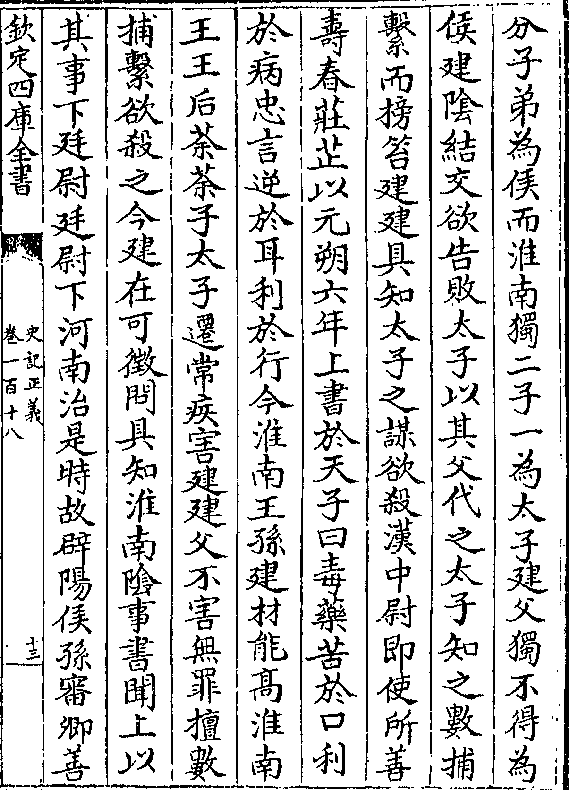 分子弟為侯而淮南獨二子一為太子建父獨不得為
侯建陰結交欲告敗太子以其父代之太子知之數捕
繫而搒笞建建具知太子之謀欲殺漢中尉即使所善
壽春莊芷以元朔六年上書於天子曰毒藥苦於口利
於病忠言逆於耳利於行今淮南王孫建材能髙淮南
王王后荼荼子太子遷常疾害建建父不害無罪擅數
捕繫欲殺之今建在可徵問具知淮南隂事書聞上以
其事下廷尉廷尉下河南治是時故辟陽侯孫審卿善
欽定四庫全書
史記正義
卷一百十八
十三